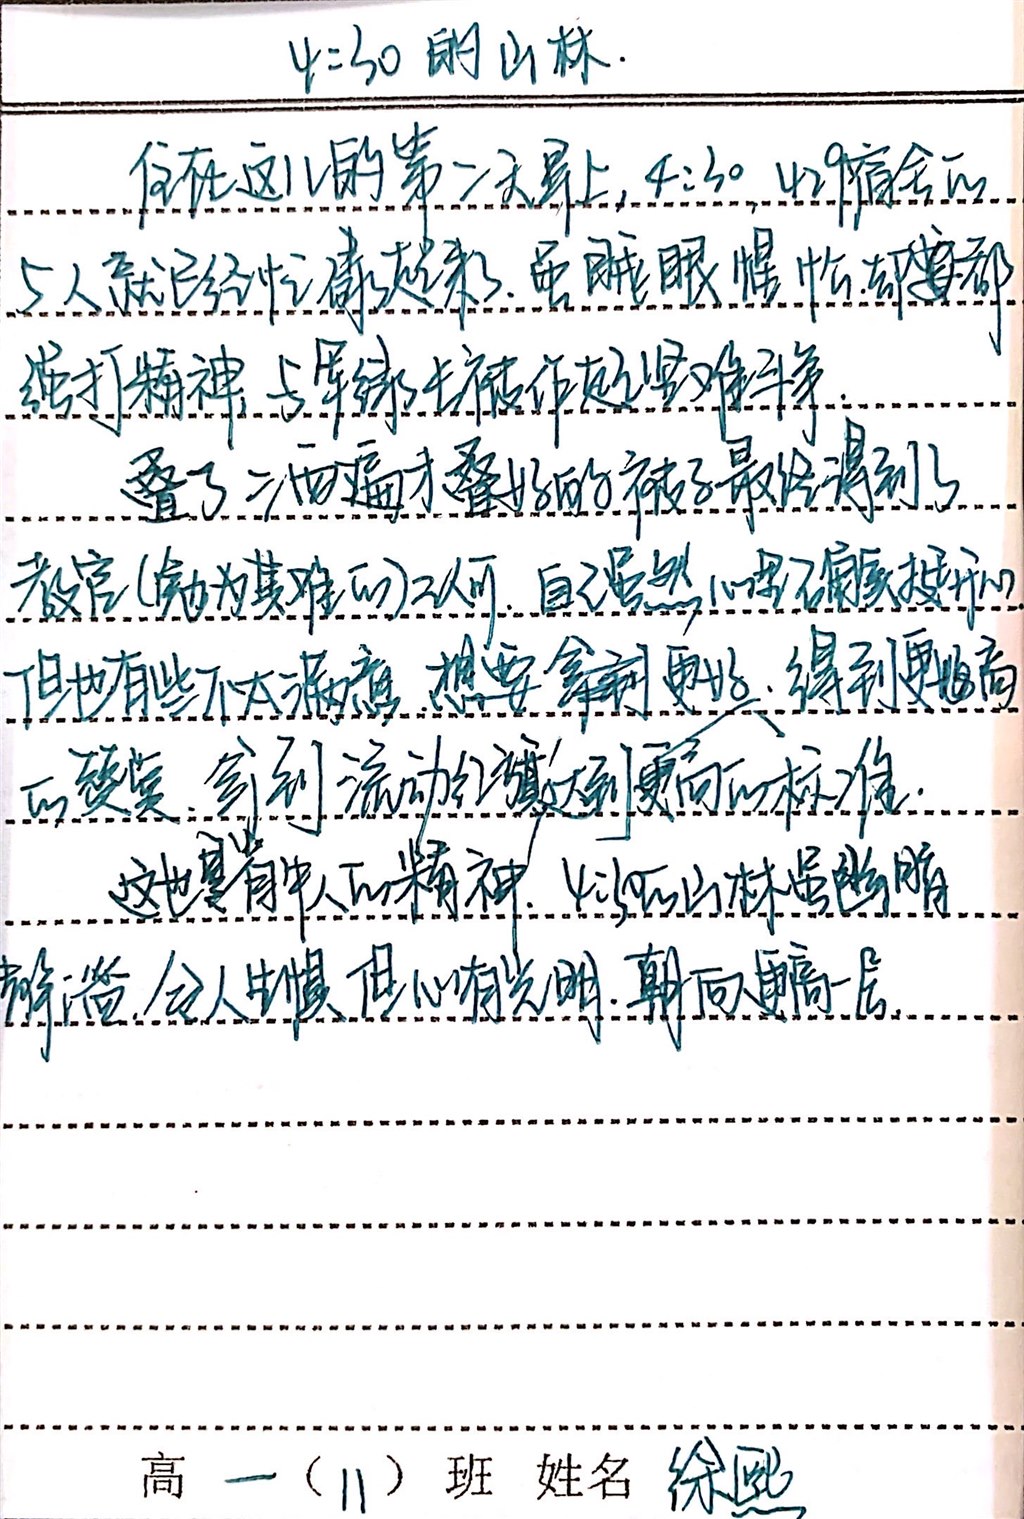 4:30的山林.
住在这儿的第二天早上,4:30,429宿舍的
5人就已经忙碌起来了.虽睡眼惺忪.却要都
强打精神,与军绿被作起艰难斗争.
叠了三四遍才叠好的被子最终得到了
教官(勉为其难的)认可.自己虽然心里不属实挺开心
但也有些不太满意.想要拿到更好、得到更高
的赞赏.拿到流动红旗达到更高的标准.
这也是青年人的精神.4:30的山林虽幽暗
静谧.令人生惧但心有光明.朝向更高一层.
高一(11)班 姓名 徐熙